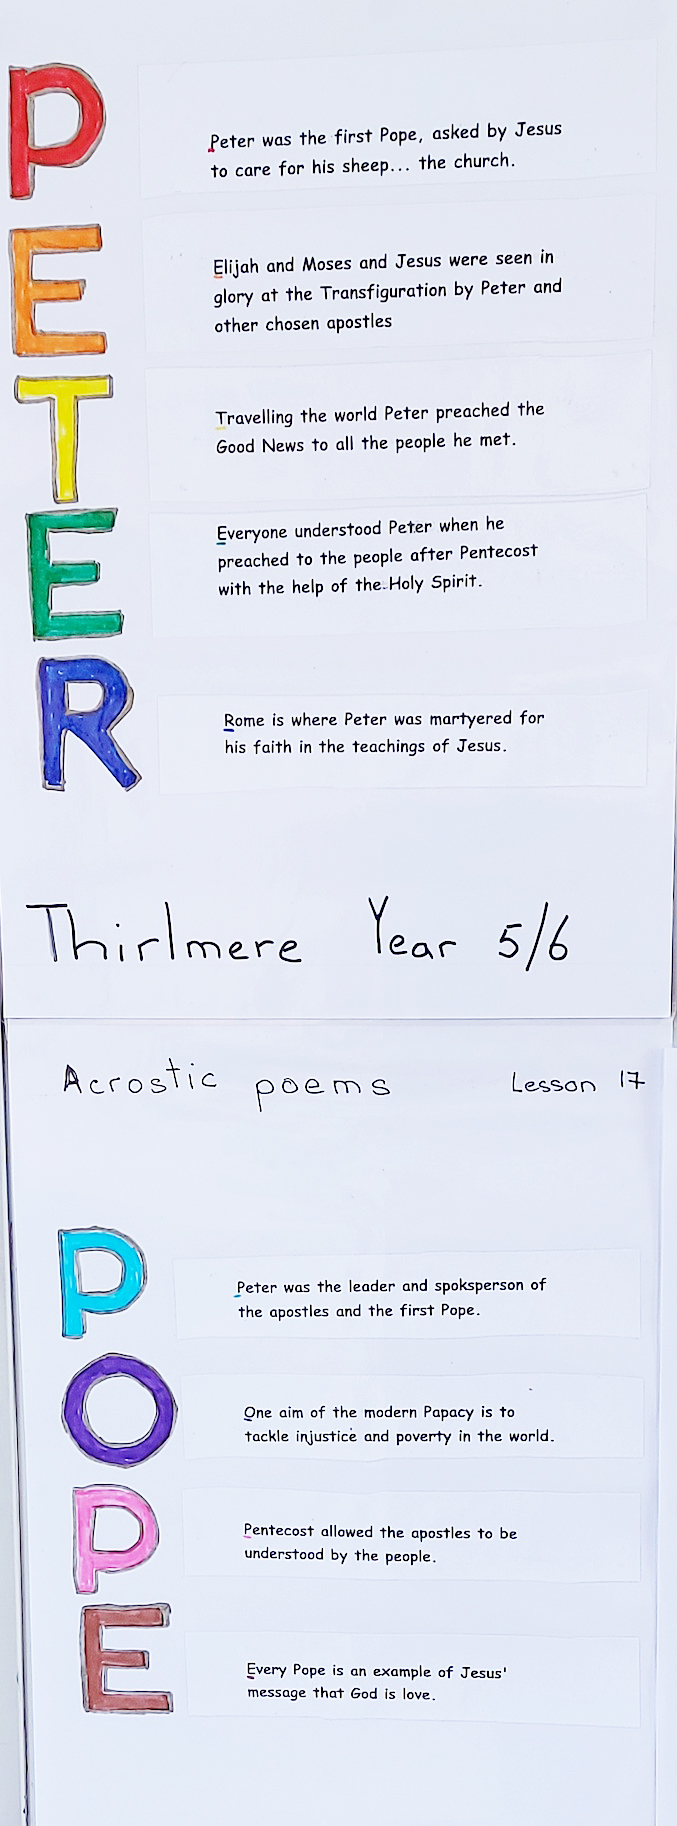 P
Peter was the first Pope, asked by Jesus
to care for his sheep... the church.
E
Elijah and Moses and Jesus were seen in
glory at the Transfiguration by Peter and
other chosen apostles
T
Travelling the world Peter preached the
Good News to all the people he met.
E
Everyone understood Peter when he
preached to the people after Pentecost
with the help of the Holy Spirit.
R
Rome is where Peter was martyered for
his faith in the teachings of Jesus.
Thirlmere Year 5/6
Acrostic poems Lesson 17
P
Peter was the leader and spoksperson of
the apostles and the first Pope.
O
One aim of the modern Papacy is to
tackle injustice and poverty in the world.
P
Pentecost allowed the apostles to be
understood by the people.
E
Every Pope is an example of Jesus'
message that God is love.